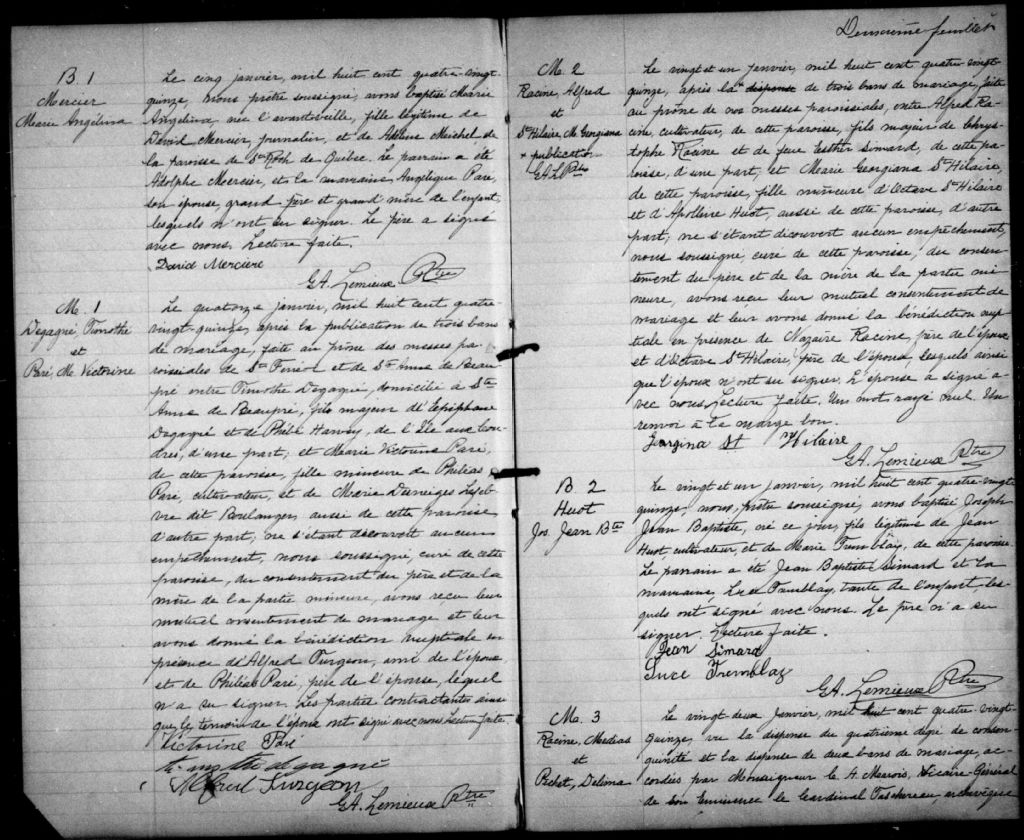 B 1
Mercier
Marie Angelina
Le cinq janvier, mil huit cent quatre-vingt
quinze, nous prêtre soussigné, avons baptisé Marie
Angelina, née l'avant-veille, fille légitime de
David Mercier, journalier, et de Michel, de
la paroisse de St Roch de Québec. Le parrain a été
Adolphe Mercier, et la marraine Angelique Paré,
son épouse, grand-père et grand'mère de l'enfant,
lesquels n'ont su signer. Le père a signé
avec nous. Lecture faite.
David Merciere
G.A. Lemieux Ptre
M. 1
Degagné Timothé
et
Paré, M. Victorine
Le quatorze janvier, mil huit cent quatre-
vingt-quinze, après la publication de trois bans
de mariage, faite au prône des messes pa-
roissiales de St Ferréol et de Ste Anne de Beau-
pré entre Timothe Degagné, domicilié à Ste
Anne de Beaupré, fils majeur d'Epiphane
Degagné et de Phébé Harvey, de l'Ile aux Cou-
dres, d'une part; et Marie Victorine Paré,
de cette paroisse, fille mineure de Philéas
Paré, cultivateur, et de Marie Desneiges Lefeb-
vre dit Boulanger, aussi de cette paroisse
d'autre part; ne s'étant découvert aucun
empêchement, nous soussigné, curé de cette
paroisse, du consentement du père et de la
mère de la partie mineure, avons reçu leur
mutuel consentement de mariage et leur
avons donné la bénédiction nuptiale en
présence d'Alfred Turgeon, ami de l'époux,
et de Philéas Paré, père de l'épouse, lequel
n'a su signer. Les parties contractantes ainsi
que le temoin de l'époux ont signé avec nous. Lecture faite
Victorine Paré
degagné
Alfred Turgeon
G.A. Lemieux Ptre
Deuxième feuillet
M. 2
Racine, Alfred
et
St Hilaire M. Georgiana
+ publication
G.A.L. Ptre
Le vingt et un janvier, mil huit cent quatre-vingt
quinze, après la + dispense de trois bans de mariage, faite
au prône de nos messes paroissiales, entre Alfred Ra-
cine, cultivateur, de cette paroisse, fils majeur de Chrys-
tophe Racine et de feue Esther Simard, de cette pa-
roisse, d'une part; et Marie Georgiana St Hilaire,
de cette paroisse, fille mineure d'Octave St Hilaire
et d'Apolline Huot, aussi de cette paroisse, d'autre
part; ne s'étant découvert aucun empêchement,
nous soussigné, curé de cette paroisse, du consen-
tement du père et de la mère de la partie mi-
neure, avons reçu leur mutuel consentement de
mariage et leur avons donné la bénédiction nup-
tiale en présence de Nazaire Racine, frère de l'époux
et d'Octave St Hilaire, père de l'épouse, lesquels ainsi
que l'époux n'ont su signer. L'épouse a signé a-
vec nous. Lecture faite. Un mot rayé nul. Un
renvoi à la marge bon.
Georgina St Hilaire
G.A. Lemieux Ptre
B. 2
Huot
Jos. Jean Bte
Le vingt et un janvier, mil huit cent quatre-vingt
quinze, nous, prêtre soussigné, avons baptisé Joseph
Jean Baptiste, né ce jour, fils légitime de Jean
Huot cultivateur, et de Marie Tremblay, de cette paroisse.
Le parrain a été Jean Baptiste Simard et la
marraine, Luce Tremblay, tante de l'enfant, les-
quels ont signé avec nous. Le père n'a su
signer. Lecture faite.
Jean Simard
Luce Tremblay
G.A. Lemieux Ptre
M. 3
Racine, Medias
et
Pichet, Delima
Le vingt deux janvier, mil huit cent quatre-vingt-
quinze, vu la dispense du quatrième degré de consan-
guinité et la dispense de deux bans de mariage, ac-
cordées par Monseigneur C. A. Marois, Vicaire-Général
de Son Eminence le Cardinal Taschereau, archevêque